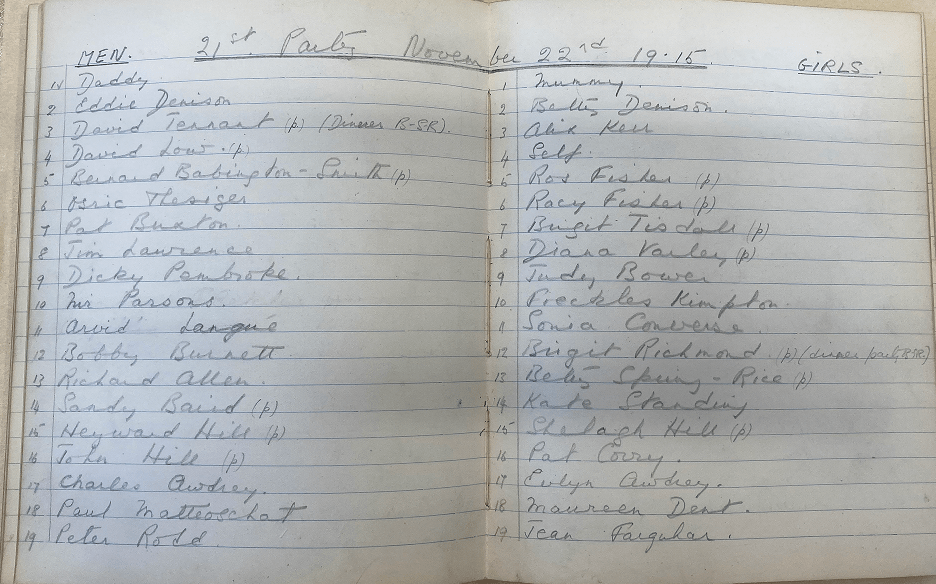 21st Party November 22nd 19.15
MEN.
1 Daddy
2 Eddie Denison
3 David Tennant (p) (Dinner B-SR).
4 David Low. (p)
5 Bernard Babington-Smith (p)
6 Osric Thesiger
7 Pat Buxton.
8 Jim Lawrence
9 Dicky Pembroke.
10 Mr Parsons.
11 Arvid Langué
12 Bobby Burnett.
13 Richard Allen.
14 Sandy Baird (p)
15 Heyward Hill (p)
16 John Hill (p)
17 Charles Awdrey.
18 Paul Matteoschat
19 Peter Rodd.
GIRLS.
1 Mummy
2 Betty Denison.
3 Alix Kerr
4 Self.
5 Ros Fisher (p)
6 Racy Fisher (p)
7 Birgit Tisdall (p)
8 Diana Varley (p)
9 Judy Bower
10 Freckles Kimpton.
11 Sonia Converse.
12 Birgit Richmond. (p) (dinner party B-SR)
13 Betty Spring-Rice (p)
14 Kate Standing
15 Shelagh Hill (p)
16 Pat Corry.
17 Evlyn Awdrey.
18 Maureen Dent.
19 Jean Farquhar.